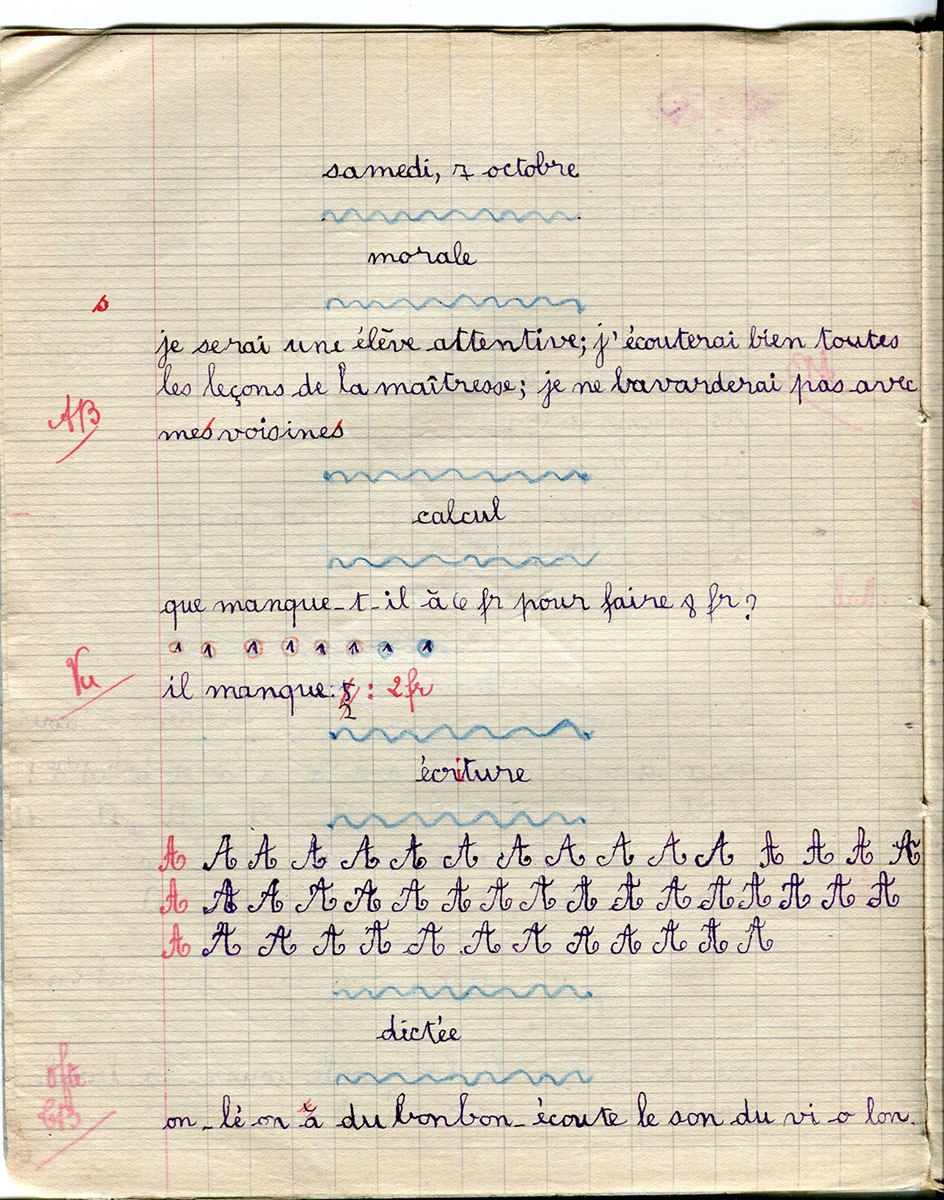 samedi, 7 octobre
morale
s
je serai une élève attentive; j'écouterai bien toutes
les leçons de la maîtresse; je ne bavarderai pas avec
AB
mes voisines
calcul
que manque-t-il à 6 fr pour faire 8 fr?
1 1 1 1 1 1 1 1
Vu
il manque: : 2fr
2
écriture
A A A A A A A A A A A A A A A A
A A A A A A A A A A A A A A A A
A A A A A A A A A A A A A
dictée
on - lé on a du bonbon - écoute le son du vi - o lon.
TB